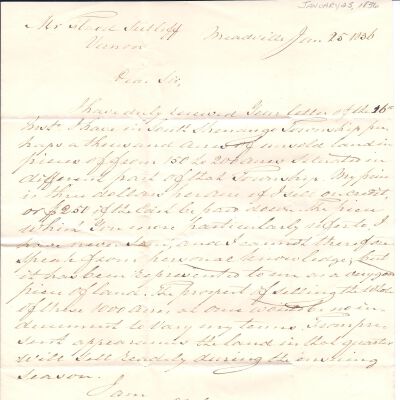 JANUARY 25, 1836
Mr
Vernon
Meadville Jan 25 1836
Dear Sir,
I have duly received Your letter of the 16th
Inst. I have in South Shenango Township per
haps a thousand acres of unsold land in
pieces of from 150 to 200 acres situated in
different parts of that Township. My price
is three dollars per acre if I sell on credit,
or $2.51 if the Cash be paid down. The piece
which You more particularly refer to I
have never seen, and I cannot therefore
speak from personal knowledge, but
it has been represented to me as a very good
piece of land. The prospect of selling the whole
of these 1000 acres at once would be no in
ducement to vary my terms. From pre
sent appearances the land in that quarter
will sell readily during the ensuing
season.
I am